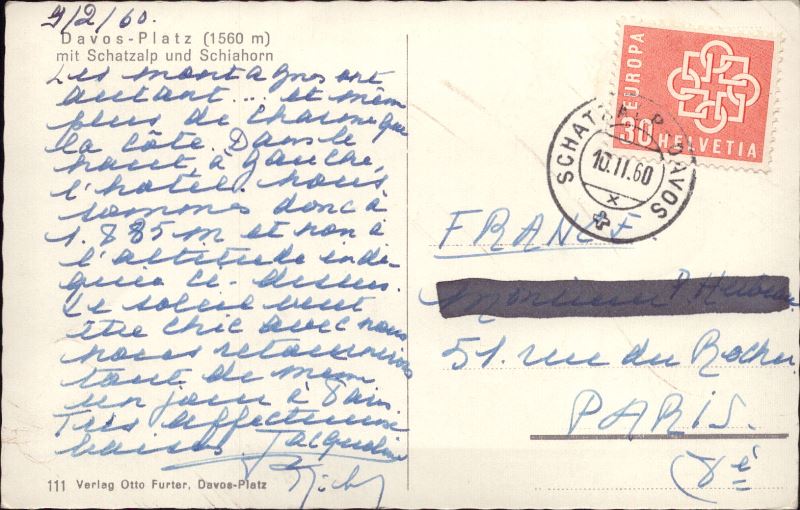 9/2/60.
Davos-Platz (1560 m)
mit Schatzalp und Schiahorn
Les montagnes ont
autant... et même
plus de charme que
la côte. Dans le
haut, à gauche,
l'hôtel. nous
sommes donc à
1.885 m et non à
l'altitude indi-
quée ci-dessus.
Le soleil veut
être chic avec nous
nous retournerons
tout de même
un jour à Paris.
Très affectueux
baisers. Jacqueline
111 Verlag Otto Furter, Davos-Platz
EUROPA
30 HELVETIA
SCHATZALP DAVOS
10.II.60
X
FRANCE.
Monsieur P.
51. rue du Rocher
PARIS.
(8è)